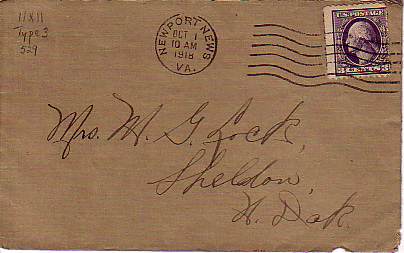 11X11
Type 3
529
NEWPORT NEWS
OCT 1
10 AM
1918
VA.
U.S. POSTAGE
3 CENTS 3
Mrs. M. G. Lock,
Sheldon,
N. Dak.